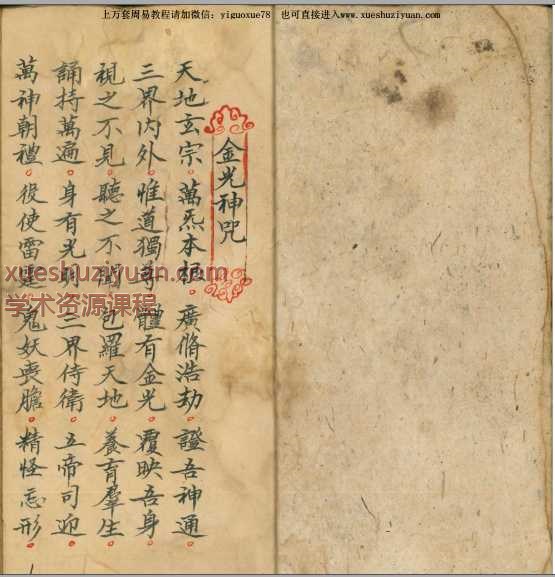 上万套周易教程请加微信：yiguoxue78 也可直接进入www.xueshuziyuan.com
金光神咒
天地玄宗。萬炁本根。廣脩浩劫。證吾神通。
三界內外。惟道獨尊。體有金光。覆映吾身。
視之不見。聽之不聞。包羅天地。養育羣生。
誦持萬遍。身有光明。三界侍衛。五帝司迎。
萬神朝禮。役使雷霆。鬼妖喪膽。精怪忘形。
xueshuziyuan.com
学术资源课程